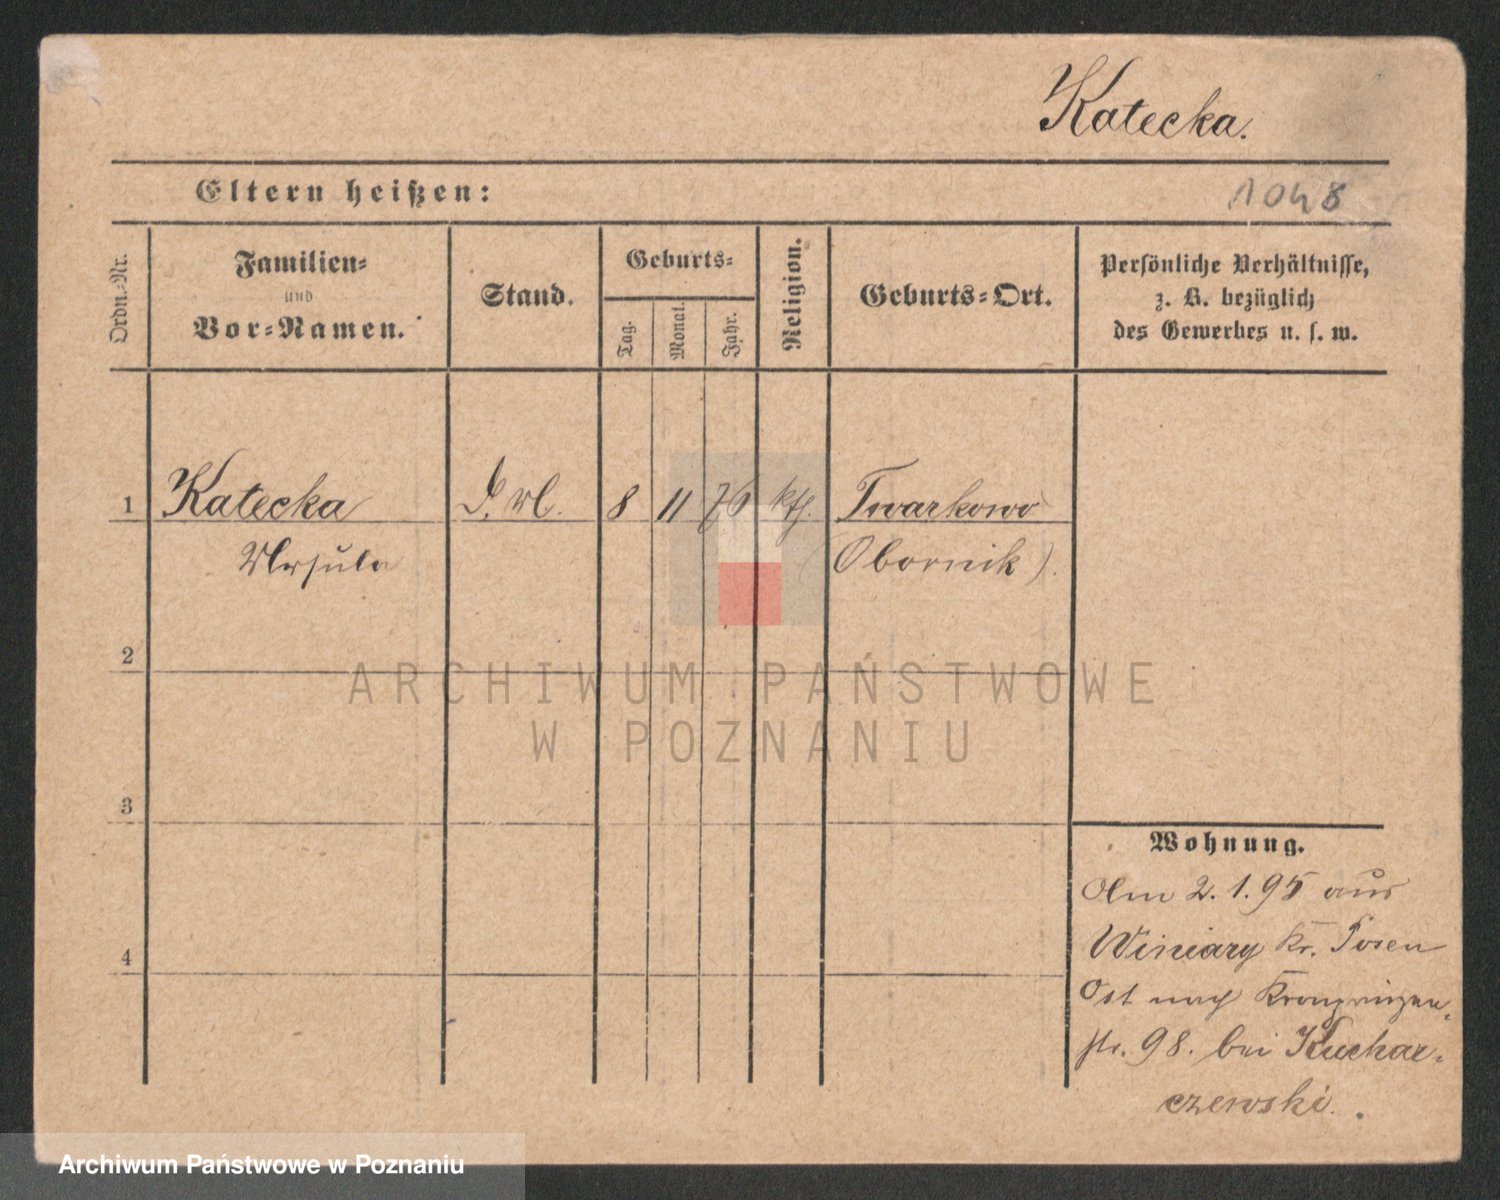 Katecka.
Eltern heißen:
1048
Ordn.-Nr.
Familien-
und
Vor-Namen.
Stand.
Geburts-
Tag.
Monat.
Jahr.
Religion.
Geburts-Ort.
Persönliche Verhältnisse,
z. B. bezüglich
des Gewerbes u. s. w.
1 Katecka 8 11 76 kth. Twarkowo
Ursula (Obornik).
2
ARCHIWUM PAŃSTWOWE
W POZNANIU
3
Wohnung.
Am 2.1.95 aus
Winiary Kr. Posen
4
Ost nach Kronprinzen-
str. 98. bei Kuchar-
czewski.
Archiwum Państwowe w Poznaniu